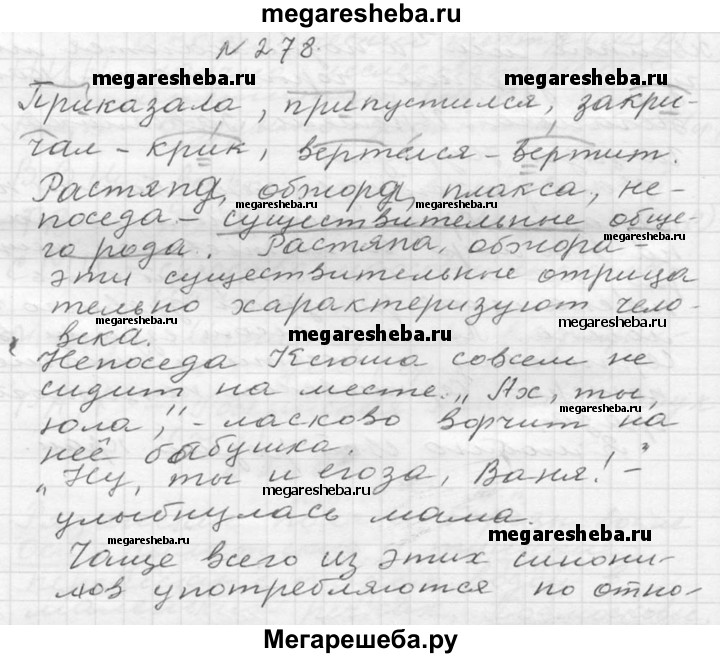 megaresheba.ru
№ 278.
megaresheba.ru megaresheba.ru
Приказала, припустился, закри-
чал - крик, вертелся - вертит.
Растяпа, обжора, плакса, не-
поседа - существительные обще-
го рода. Растяпа, обжора -
megaresheba.ru
эти существительные отрица
тельно характеризуют чело-
megaresheba.ru megaresheba.ru
века. megaresheba.ru
Непоседа Ксюша совсем не
сидит на месте. „Ах, ты,
юла", - ласково ворчит на
megaresheba.ru
неё бабушка.
„Ну, ты и егоза, Ваня!" -
megaresheba.ru
улыбнулась мама.
megaresheba.ru megaresheba.ru
Чаще всего из этих синони-
мов употребляются по отно-
megaresheba.ru
Мегарешеба.ру